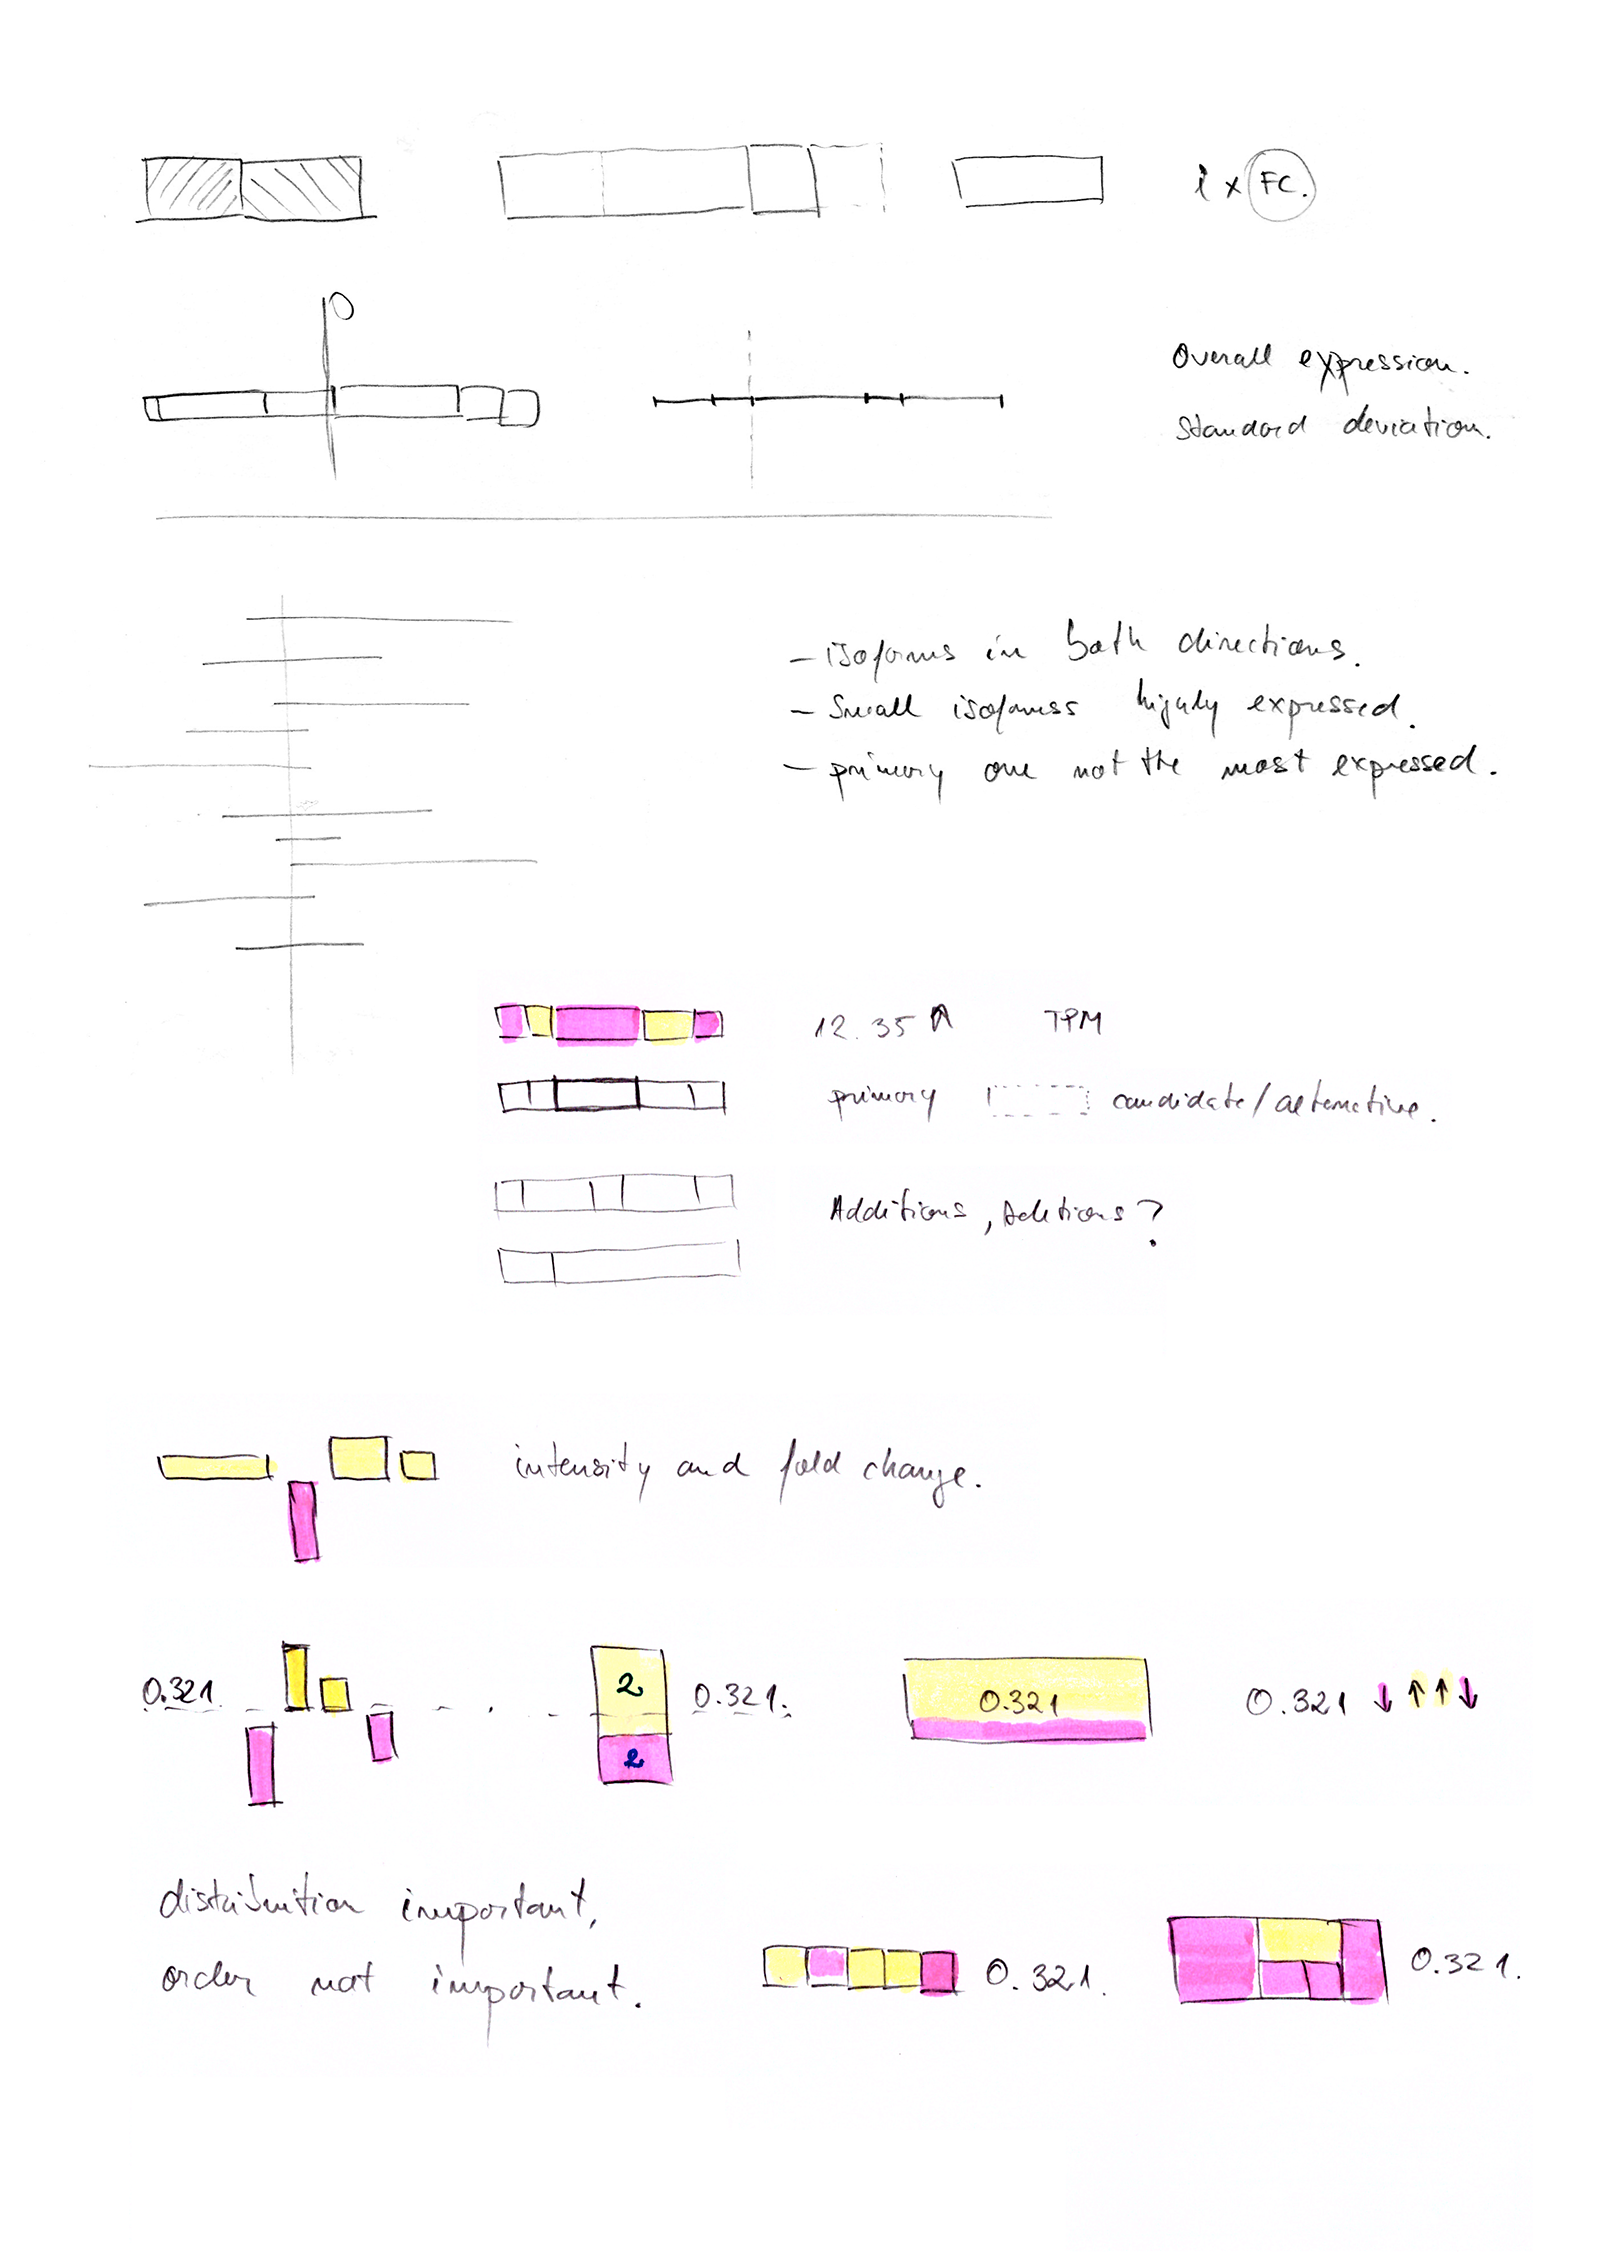 i x FC.
0
Overall expression.
Standard deviation.
- isoforms in both directions.
- Small isoforms highly expressed.
- primary one not the most expressed.
12.35 ↑ TPM
primary candidate/alternative.
Additions, deletions?
intensity and fold change.
0.321.
2
2
0.321.
0.321
0.321 ↓ ↑ ↑ ↓
distribution important,
order not important.
0.321.
0.321.